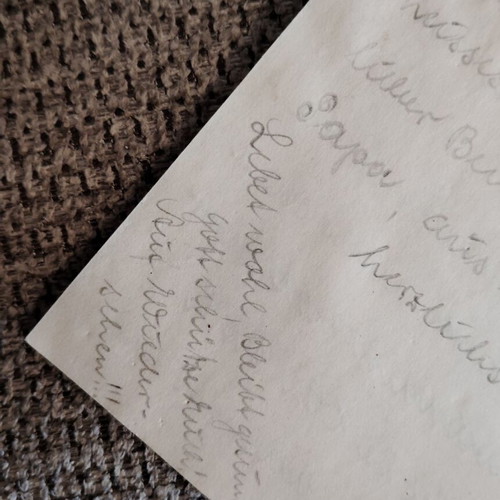 Euer
Papa, aus
herzlichs
Lebet wohl, Bleibt
Gott schütze Euch!
Auf Wieder-
sehen!!!